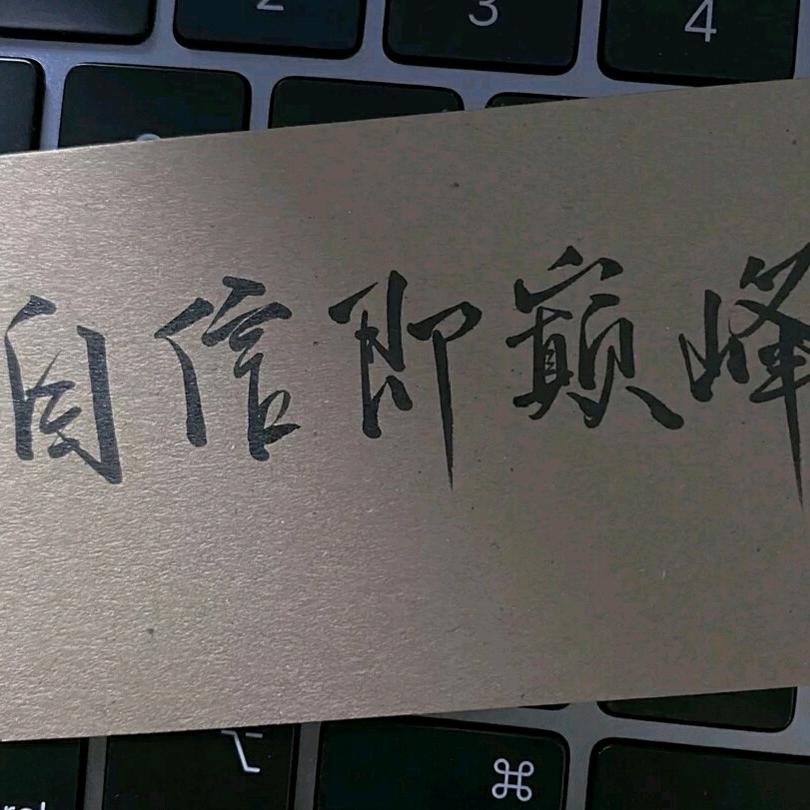 2 3 4
自信即巅峰
⌥ ⌘